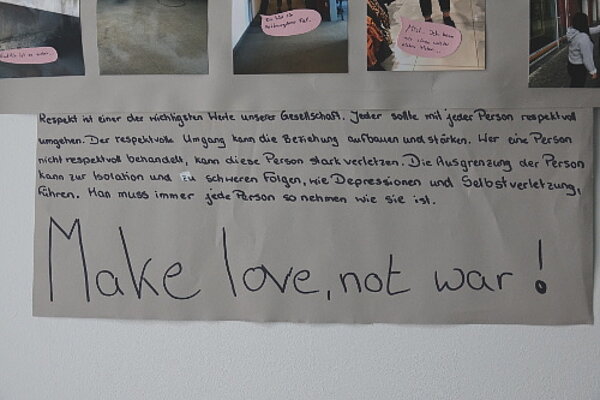 Respekt ist einer der wichtigsten Werte unserer Gesellschaft. Jeder sollte mit jeder Person respektvoll
umgehen. Der respektvolle Umgang kann die Beziehung aufbauen und stärken. Wer eine Person
nicht respektvoll behandelt, kann diese Person stark verletzen. Die Ausgrenzung der Person
kann zur Isolation und zu schweren Folgen, wie Depressionen und Selbstverletzung,
führen. Man muss immer jede Person so nehmen wie sie ist.
Make love, not war!